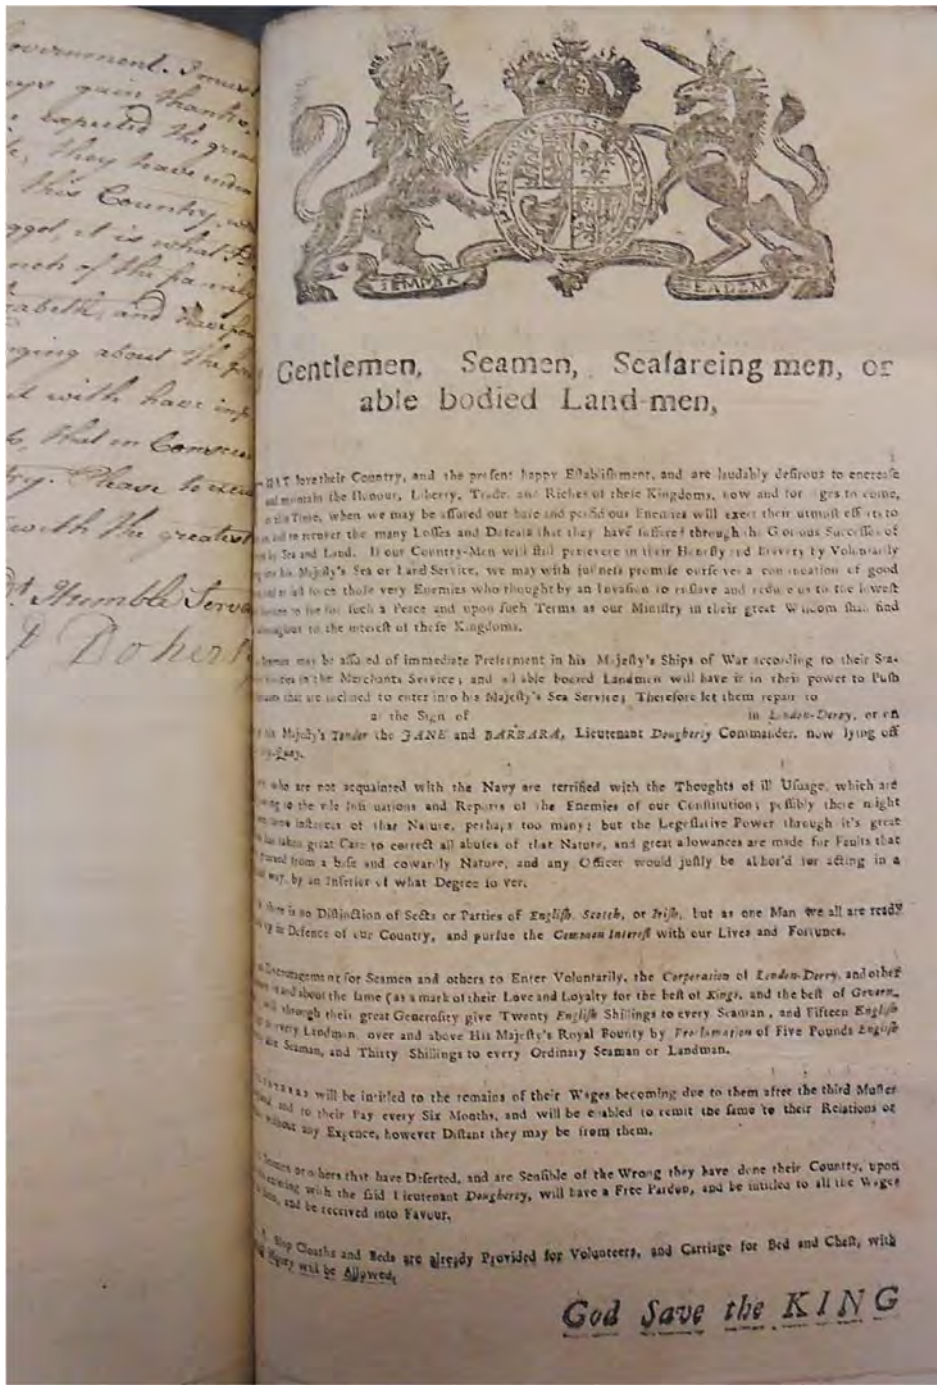 Government. I must
gain thanks,
expected the great
they have
this Country,
it is what
of the family
and
about the
with have
that in
Please
with the greatest
Humble Serva
Doherty
SEMPER
EADEM
Gentlemen, Seamen, Seafareing men, or
able bodied Land-men,
THAT love their Country, and the present happy Establishment, and are laudably desirous to encrease
and maintain the Honour, Liberty, Trade, and Riches of these Kingdoms, now and for ages to come,
is the Time, when we may be assured our base and perfidious Enemies will exert their utmost efforts to
to recover the many Losses and Defeats that they have suffered through the Glorious Successes of
by Sea and Land. If our Country-Men will still persevere in their Honesty and Bravery by Voluntarily
his Majesty's Sea or Land Service, we may with justness promise ourselves a continuation of good
and force those very Enemies who thought by an Invasion to enslave and reduce us to the lowest
such a Peace and upon such Terms as our Ministry in their great Wisdom shall find
to the interest of these Kingdoms.
may be assured of immediate Preferment in his Majesty's Ships of War according to their Sta-
in the Merchants Service; and able bodied Landmen will have it in their power to Push
that are inclined to enter into his Majesty's Sea Service; Therefore let them repair to
at the Sign of in London-Derry, or on
his Majesty's Tender the JANE and BARBARA, Lieutenant Dougherty Commander, now lying off
Quay.
who are not acquainted with the Navy are terrified with the Thoughts of ill Usuage, which are
to the vile Insinuations and Reports of the Enemies of our Constitution; possibly there might
some instances of that Nature, perhaps too many; but the Legeslative Power through it's great
has taken great Care to correct all abuses of that Nature, and great allowances are made for Faults that
from a base and cowardly Nature, and any Officer would justly be abhor'd for acting in a
way, by an Inferior of what Degree so ver.
there is no Distinction of Sects or Parties of English, Scotch, or Irish, but as one Man we all are ready
in Defence of our Country, and pursue the Common Interest with our Lives and Fortunes.
Encouragement for Seamen and others to Enter Voluntarily, the Corporation of London-Derry, and other
and about the same (as a mark of their Love and Loyalty for the best of Kings, and the best of Govern-
will through their great Generosity give Twenty English Shillings to every Seaman, and Fifteen English
every Landman over and above His Majesty's Royal Bounty by Proclamation of Five Pounds English
Seaman, and Thirty Shillings to every Ordinary Seaman or Landman.
will be intitled to the remains of their Wages becoming due to them after the third Muster
and to their Pay every Six Months, and will be enabled to remit the same to their Relations or
without any Expence, however Distant they may be from them.
Seamen or others that have Deserted, and are Sensible of the Wrong they have done their Country, upon
with the said Lieutenant Dougherty, will have a Free Pardon, and be intitled to all the Wages
and be received into Favour.
Slop Cloaths and Beds are already Provided for Volunteers, and Carriage for Bed and Chest, with
will be Allowed.
God Save the KING